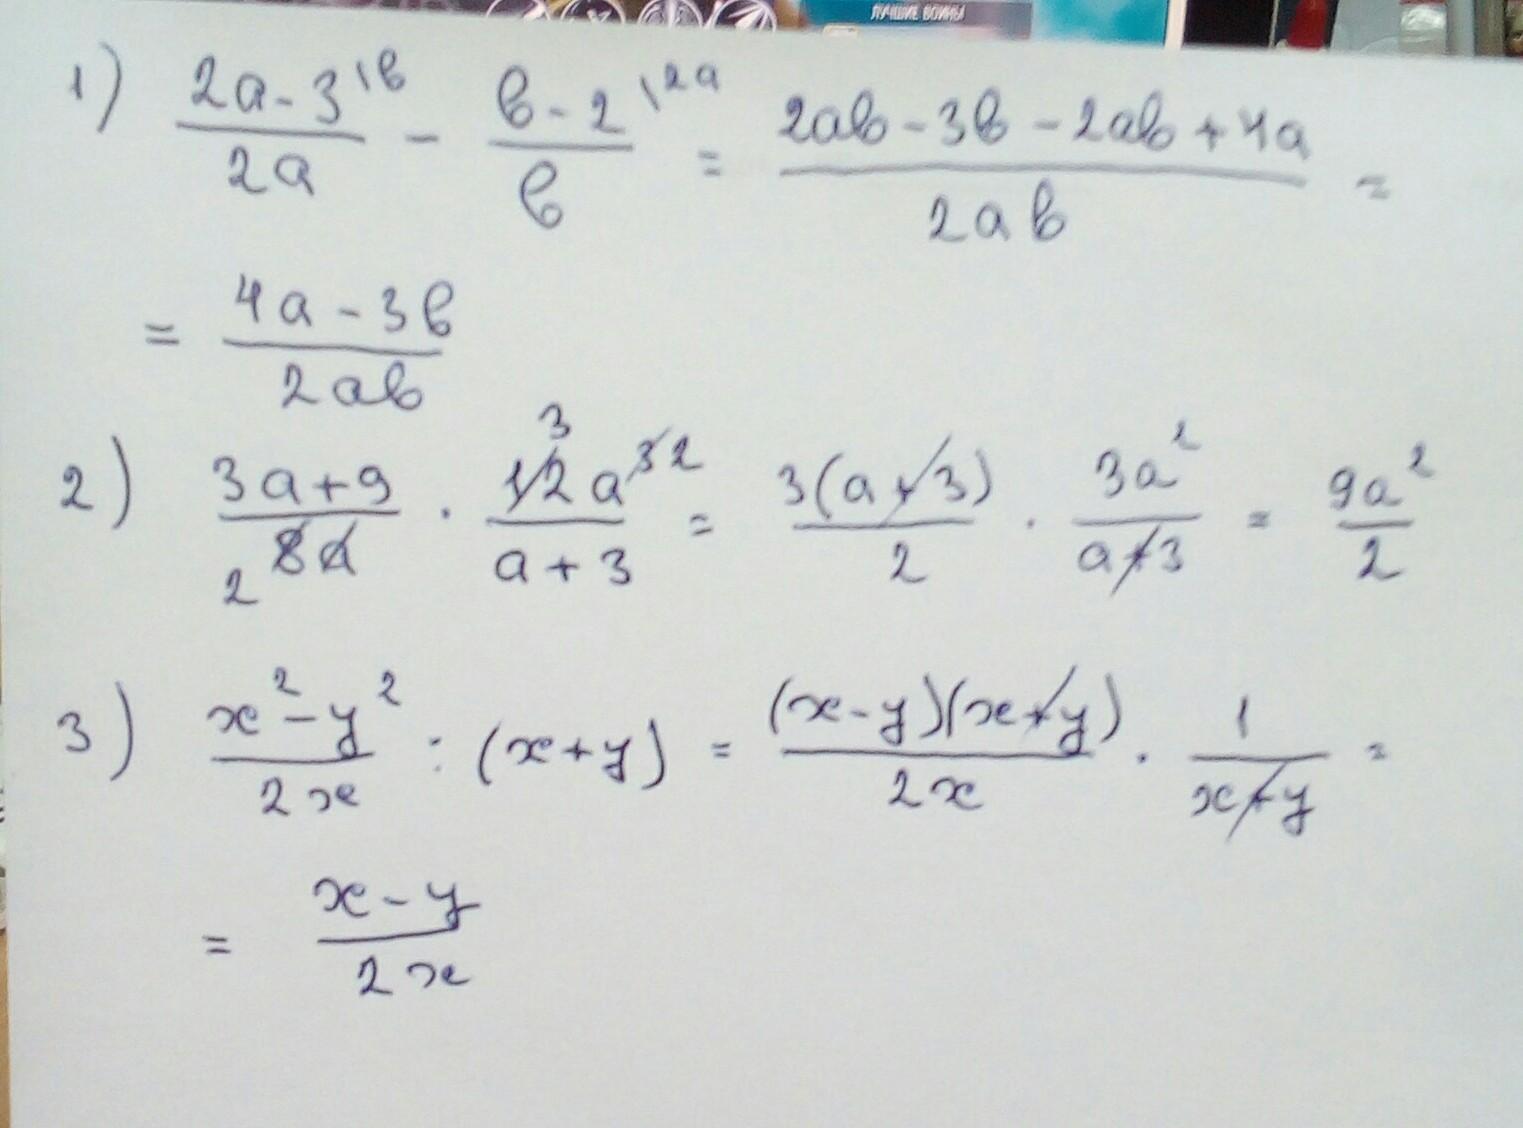 ЛУЧШИЕ ВОИНЫ
1) (2a - 3^{\в})/(2a) - (в - 2^{\2a})/в = (2ав - 3в - 2ав + 4a)/(2ав) =
= (4a - 3в)/(2ав)
2) (3a + 9)/(8a) · (12a^3)/(a + 3) = 3(a + 3)/2 · 3a^2/(a + 3) = 9a^2/2
3) (x^2 - y^2)/(2x) : (x + y) = (x - y)(x + y)/(2x) · 1/(x + y) =
= (x - y)/(2x)